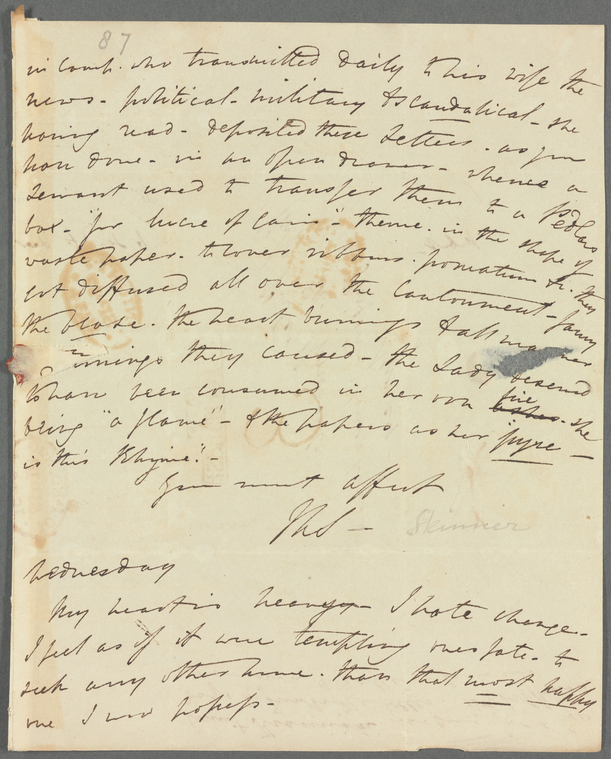 87
in Camp. who transmitted daily to his wife the
news - political - military & scandalical - she
having read - deposited these Letters - as you
have done - in an open drawer - whence a
servant used to transfer them to a Pedlars
box - "for lucre of Gain" - thence in the shape of
waste paper - to cover ribbons. pomatum &c. they
got diffused all over the Cantonment - fancy
the blaze. the heart burnings & all manner
urnings they caused - the Lady deserved
to have been consumed in her own fire - she
being "a flame" - & the papers as her "pyre" -
is this Rhyme? -
Your most affect
ThS - Skinner
Wednesday
My heart is heavy - I hate change -
I feel as if it were tempting ones fate - to
seek any other home - than that most happy
one I now possess -